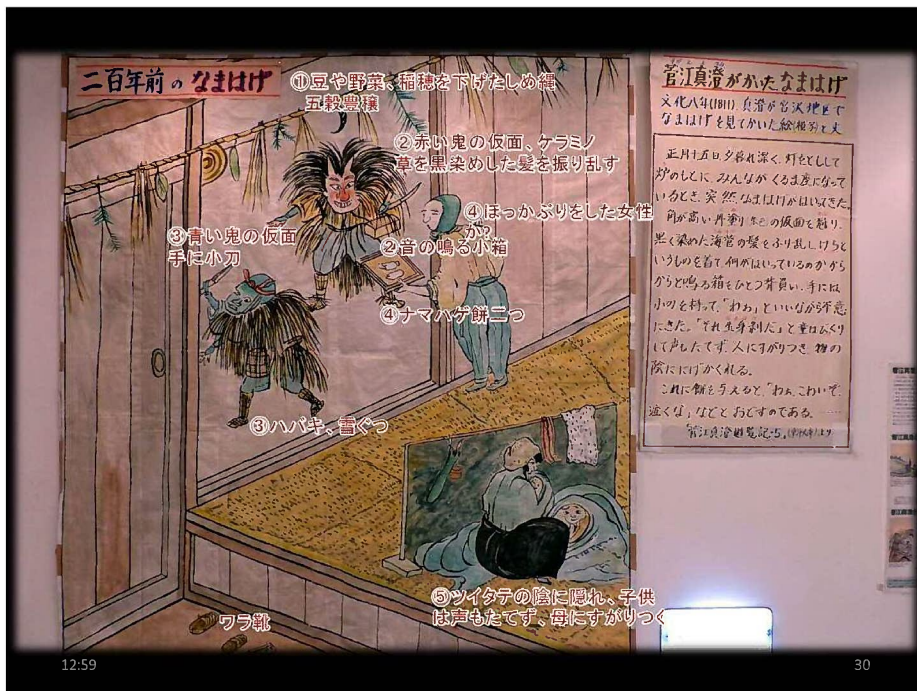 二百年前のなまはげ
①豆や野菜、稲穂を下げたしめ縄
五穀豊穣
②赤い鬼の仮面、ケラミノ
草を黒染めした髪を振り乱す
④ほっかぶりをした女性
か?
③青い鬼の仮面
手に小刀
②音の鳴る小箱
④ナマハゲ餅二つ
③ハバキ、雪ぐつ
⑤ツイタテの陰に隠れ、子供
は声もたてず、母にすがりつく
ワラ靴
菅江真澄がかいたなまはげ
文化八年(1811) 真澄が宮沢地区で
なまはげを見てかいた絵と文
正月十五日夕暮れ深く、灯をともして
炉のもとに、みんながくるま座になって
いるとき、突然、なまはげがはいってきた。
角が高い丹塗りの仮面を被り、
黒く染めた海菅の髪をふり乱し、けらと
いうものを着て、何がはいっているのかから
からと鳴る箱をひとつ背負い、手には
小刀を持って、「わぉ」といいながら不意
にきた。「それ生身剥だ」と童はびっくり
して声もたてず、人にすがりつき、物の
陰ににげかくれる。
これに餅を与えると、「わぉ、こわいぞ、
泣くな」などとおどすのである。
菅江真澄遊覧記 より
12:59
30